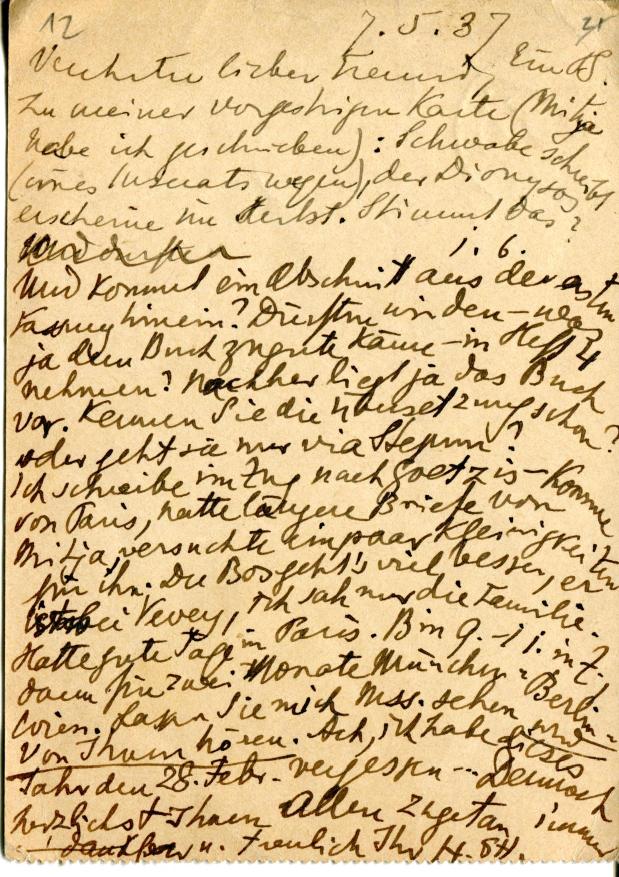 12
7.5.37
25
Verehrter lieber Freund, Ein PS.
zu meiner vorgestrigen Karte (Mitja
habe ich geschrieben): Schwabe schreibt
(eines Inserats wegen), der Dionysos
erscheine im Herbst. Stimmt das?
1. 6.
Und kommt ein Abschnitt aus der ersten
Fassung hinein? Dürften wir den – was
ja dem Buch zugute käme – in Heft 4
nehmen? Nachher liegt ja das Buch
vor. Kennen Sie die Übersetzung schon?
oder geht sie nur via Stepun?
Ich schreibe im Zug nach Goetzis – komme
von Paris, hatte längere Briefe von
Mitja, versuchte ein paar Kleinigkeiten
für ihn. Du Bos geht's viel besser, er
ist bei Vevey, ich sah nur die Familie.
Hatte gute Tage in Paris. Bin 9.–11. in Z.,
dann für zwei Monate München-Berlin-
Wien. Lassen Sie mich Mss. sehen und
von Ihnen hören. Ach, ich habe dieses
Jahr den 28. Febr. vergessen --- Dennoch
herzlichst Ihnen Allen zugetan, immer
dankbar u. treulich Ihr H. St.